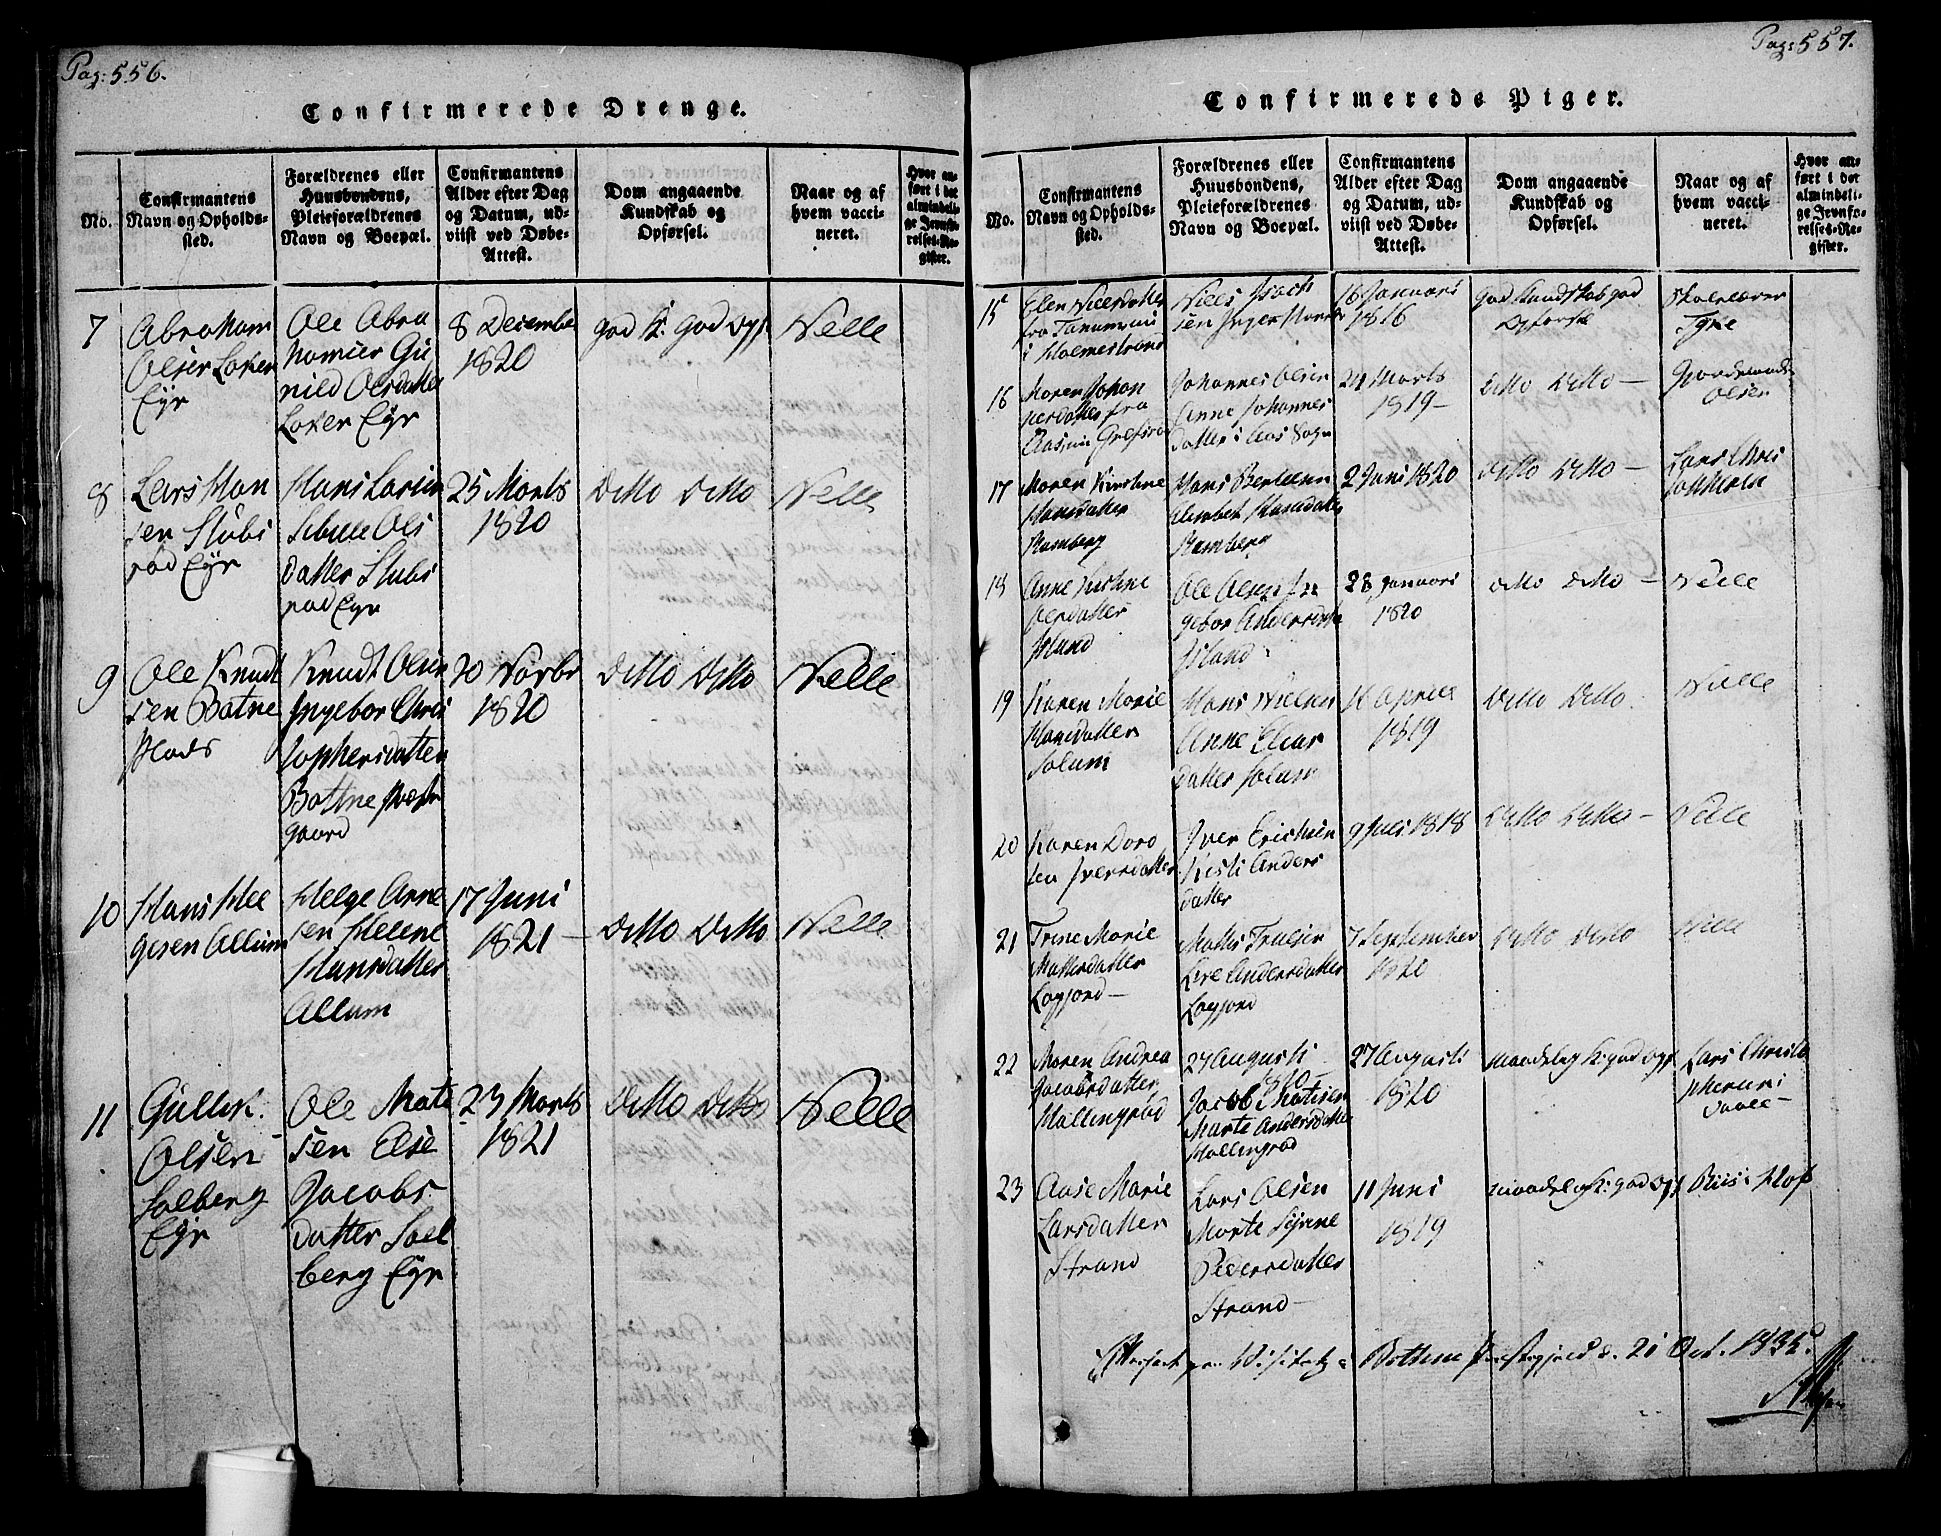 Pag: 556.
Confirmerede Drenge.
No.
Confirmantens
Navn og Opholds-
sted.
Forældrenes eller
Huusbondens,
Pleieforældrenes
Navn og Boepæl.
Confirmantens
Alder efter Dag
og Datum, ud-
viist ved Døbe-
Attest.
Dom angaaende
Kundskab og
Opførsel.
Naar og af
hvem vacci-
neret.
Hvor an-
ført i det
almindeli-
ge Jevnfø-
relses-Re-
gister.
7
Abraham
Olsen
Eyr
Ole Abra
Gu
nild Olsdatter
Eyr
8 December
1820
god K: god Opf
Nelle
8
Lars Han
sen Stubs
rød Eyr
Hans Larsen
Ols
datter Stubs
rød Eyr
25 Marts
1820
Ditto Ditto
Nelle
9
Ole Knudt
sen Botne
Knudt Olsen
Ingebor Chris
tophersdatter
Bottne Præste
gaard
20 Novbr
1820
Ditto Ditto
Nelle
10
Hans Hel
gesen Allum
Helge Arne
sen Helene
Hansdatter
Allum
17 Juni
1821
Ditto Ditto
Nelle
11
Gullik
Olsen
Solberg
Eyr
Ole Mati
sen Else
Jacobs
datter Soel
berg Eyr
23 Marts
1821
Ditto Ditto
Nelle
Pag: 557.
Confirmerede Piger.
No.
Confirmantens
Navn og Opholds-
sted.
Forældrenes eller
Huusbondens,
Pleieforældrenes
Navn og Boepæl.
Confirmantens
Alder efter Dag
og Datum, ud-
viist ved Døbe-
Attest.
Dom angaaende
Kundskab og
Opførsel.
Naar og af
hvem vacci-
neret.
Hvor an-
ført i det
almindeli-
ge Jevnfø-
relses-Re-
gister.
15
Elen Nilsdatter
fra
i Holmestrand
Niels Isach
sen
16 Januari
1816
god Kundskab god
Opførsel
Skolelærer
16
Maren Johan
nesdatter fra
Johannes Olsen
Anne Johannes
datter i Aas Sogn
24 Marts
1819
Ditto Ditto
Olsen
17
Maren Kirstine
Hansdatter
Ramberg
Hans
Elisabet Hansdatter
Ramberg
2 Juni 1820
Ditto Ditto
Lars Chris
18
Anne
Olsdatter
Island
Ole Olsen In
gebor Andersdatter
Island
28 Januari
1820
Ditto Ditto
Nelle
19
Karen Marie
Hansdatter
Solum
Hans Nielsen
Anne Elias
datter Solum
16 April
1819
Ditto Ditto
Nelle
20
Karen Doro
tea Iversdatter
Iver Ericksen
Kirsti Anders
datter
9 Juli 1818
Ditto Ditto
Nelle
21
Trine Marie
Mattisdatter
Mattis Truelsen
Live Andersdatter
7 September
1820
Ditto Ditto
Nelle
22
Maren Andrea
Jacobsdatter
Hallingrød
27 Augusti
1820
Jacob Matisen
Marte Andersdatter
Hallingrød
27 Augusti
1820
maadelig K: god Opf
Lars Christo
phersen i
23
Aase Marie
Larsdatter
Strand
Lars Olsen
Marte Sirene
Pedersdatter
Strand
11 Juni
1819
maadelig K: god Opf
Riis i Hof
Bottene Præstegjeld d. 21 Oct. 1835.